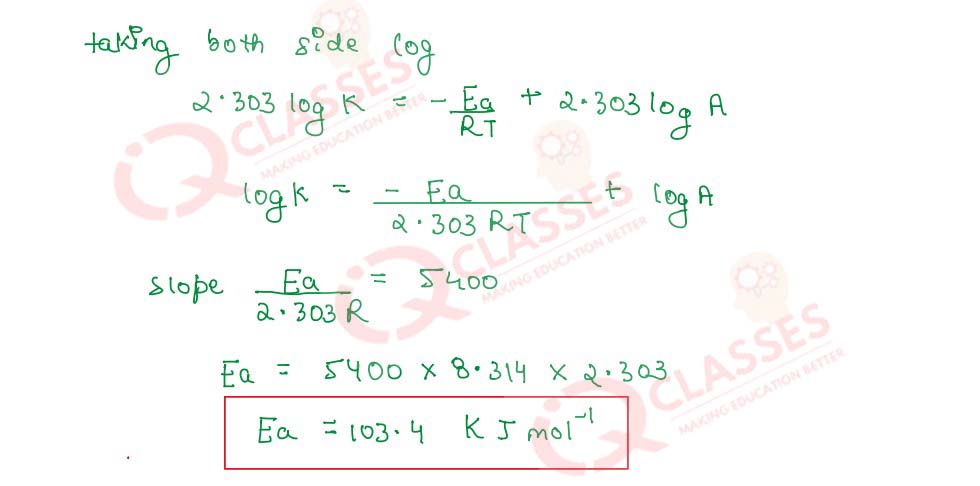 taking both side log
2.303 log K = - Ea/RT + 2.303 log A
log K = - Ea/2.303 RT + log A
slope Ea/2.303 R = 5400
Ea = 5400 × 8.314 × 2.303
Ea = 103.4 KJ mol⁻¹
CLASSES
MAKING EDUCATION BETTER
CLASSES
MAKING EDUCATION BETTER
CLASSES
MAKING EDUCATION BETTER